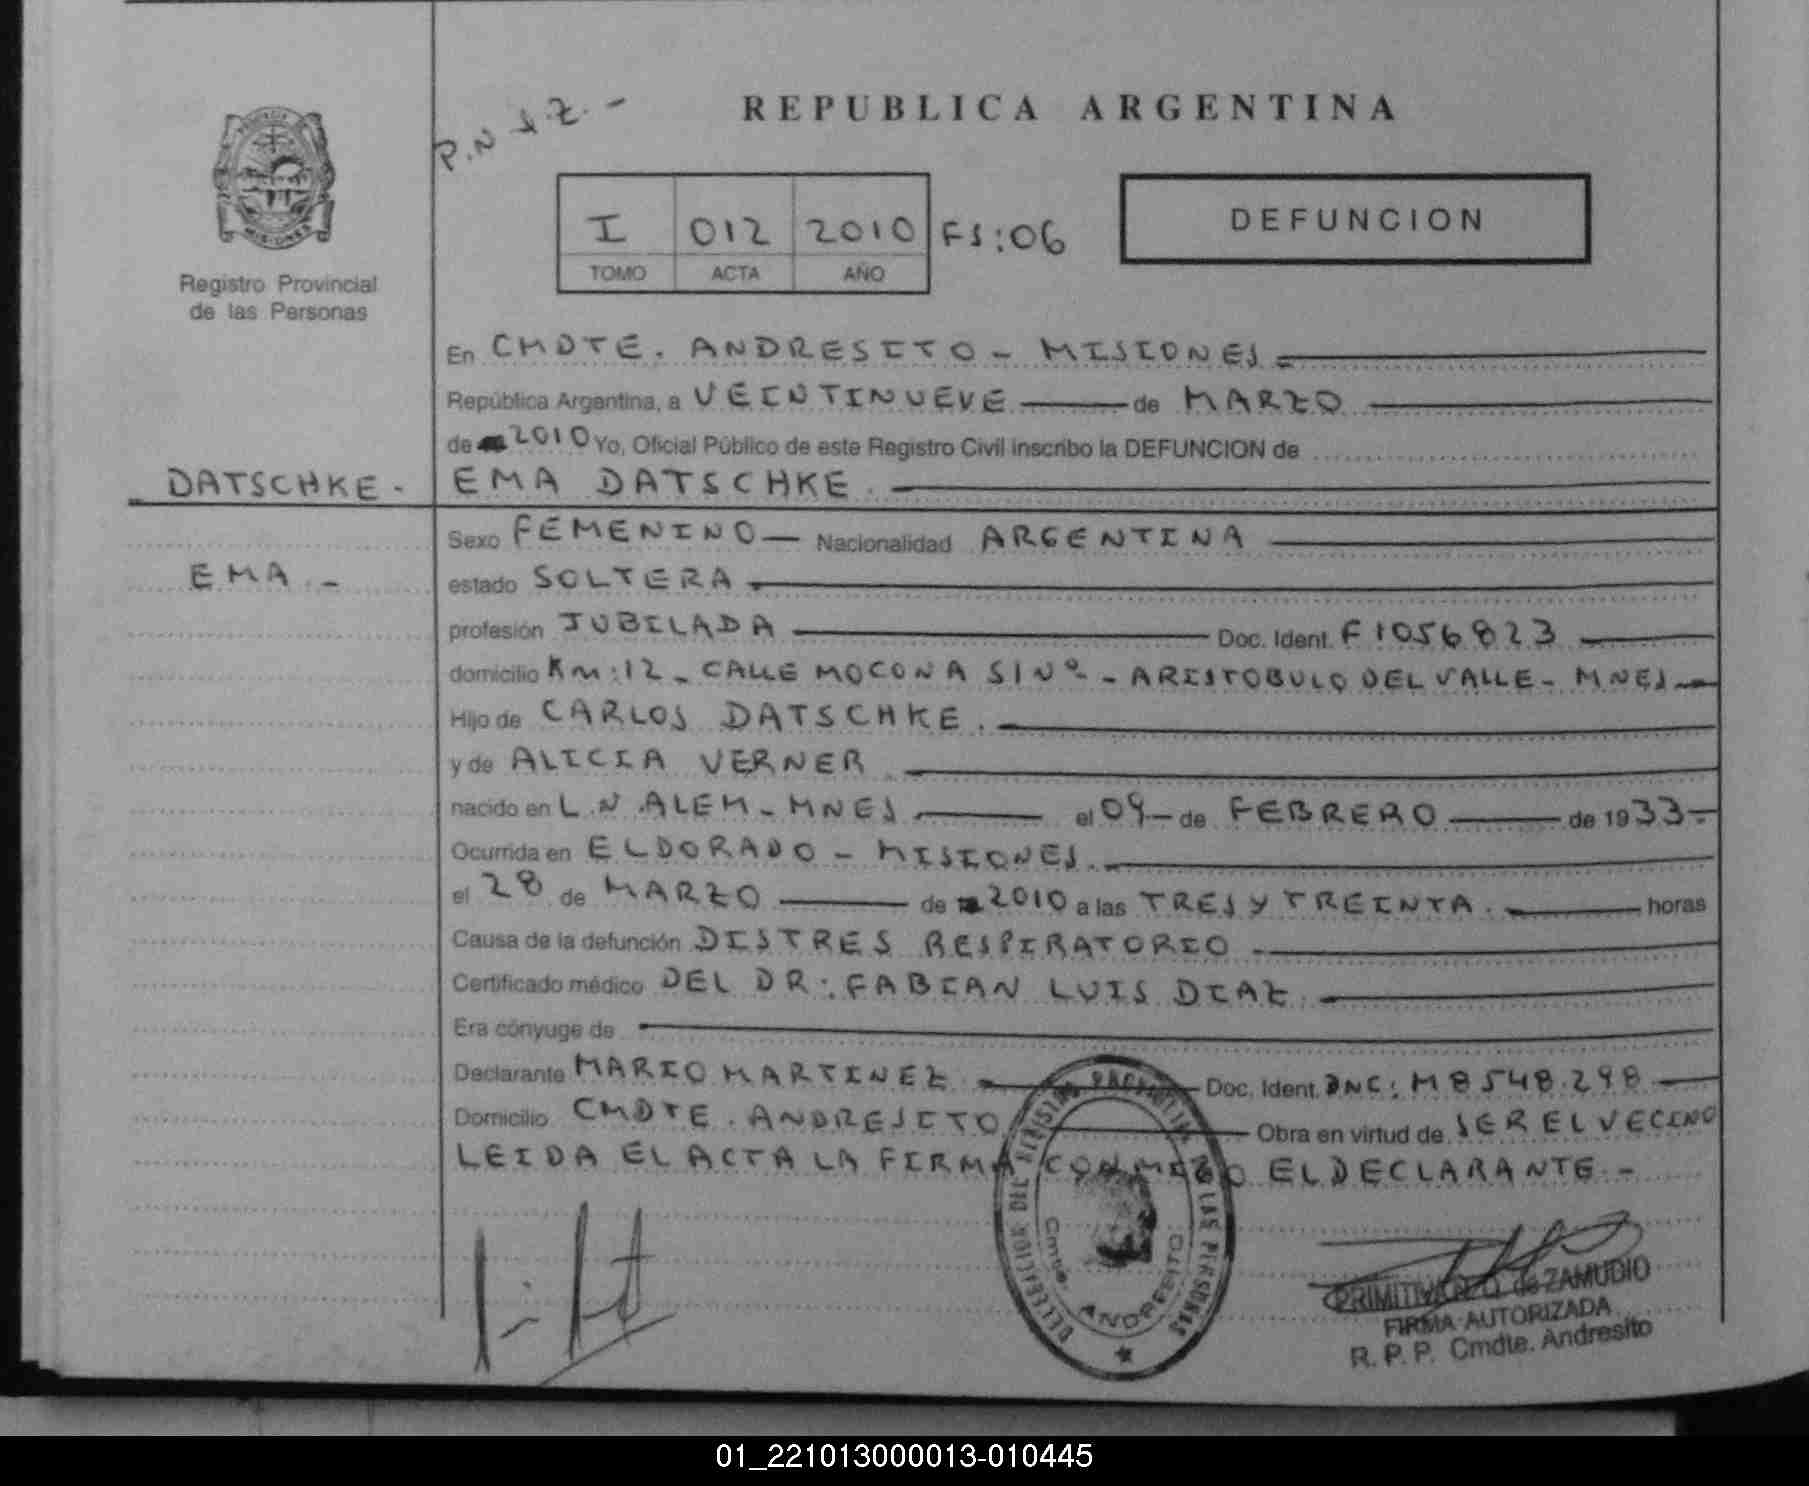 REPUBLICA ARGENTINA
P.N
MISIONES
Registro Provincial
de las Personas
I 012 2010 FS:06
TOMO ACTA AÑO
DEFUNCION
En CMDTE. ANDRESITO - MISIONES
República Argentina, a VEINTINUEVE de MARZO
de 2010 Yo, Oficial Público de este Registro Civil inscribo la DEFUNCION de
DATSCHKE.
EMA DATSCHKE.
Sexo FEMENINO Nacionalidad ARGENTINA
EMA.-
estado SOLTERA
profesión JUBILADA Doc. Ident. F1056823
domicilio KM:12 - CALLE MOCONA S/Nº - ARISTOBULO DEL VALLE - MNES
Hijo de CARLOS DATSCHKE.
y de ALICIA VERNER
nacido en L.N.ALEM - MNES el 09 de FEBRERO de 1933.-
Ocurrida en ELDORADO - MISIONES.
el 28 de MARZO de 2010 a las TRES Y TREINTA. horas
Causa de la defunción DISTRES RESPIRATORIO
Certificado médico DEL DR: FABIAN LUIS DIAZ.
Era cónyuge de
Declarante MARIO MARTINEZ Doc. Ident. DNI: M8548.298
Domicilio CMDTE. ANDRESITO Obra en virtud de SER EL VECINO
LEIDA EL ACTA LA FIRMA CONMIGO EL DECLARANTE.-
DELEGACION DEL REGISTRO PROVINCIAL DE LAS PERSONAS
Cmdte. ANDRESITO
de ZAMUDIO
FIRMA AUTORIZADA
R. P. P. Cmdte. Andresito
01_221013000013-010445